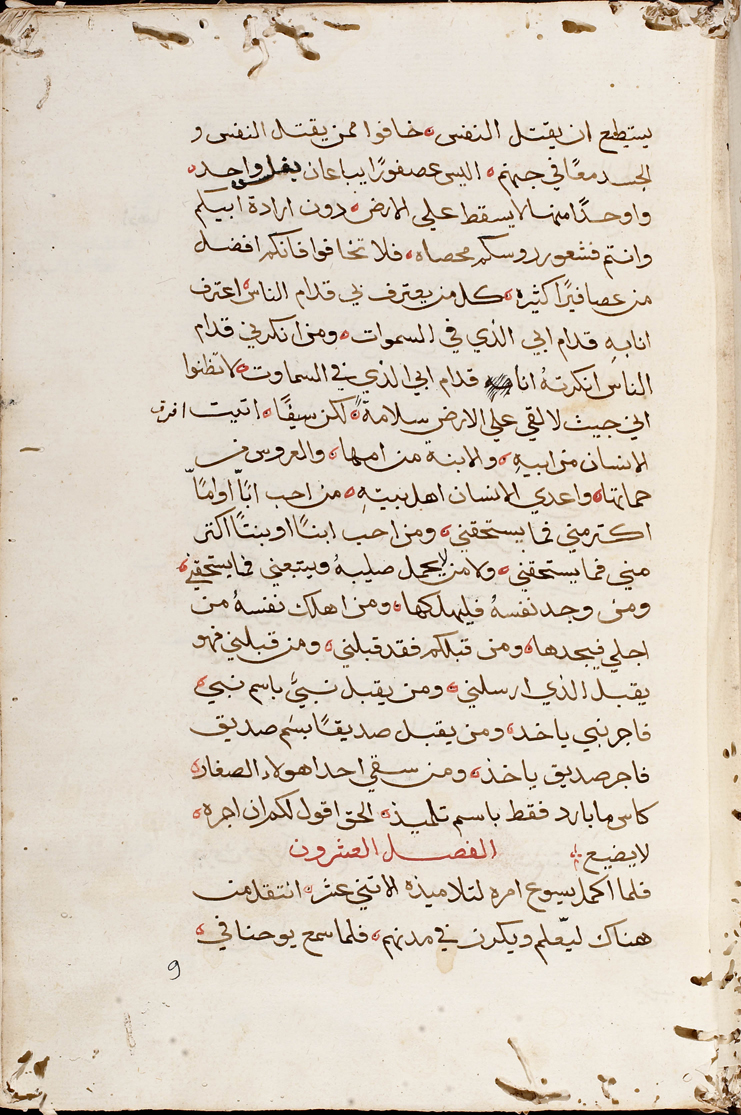 يستطيع ان يقتل النفس، خافوا ممن يقتل النفس و
الجسد معًا في جهنم، اليس عصفورًا يباعان بفلس واحد،
واوحدًا منهما لا يسقط علي الارض، دون ارادة ابيكم
وانتم فشعور روسكم محصاه، فلا تخافوا فانكم افضل
من عصافيرًا كثيره، كل من يعترف بي قدام الناس، اعترف
انا به قدام ابي الذي في السموات، ومن انكرني قدام
الناس انكرتهُ انا قدام ابي الذي في السماوت، لا تظنوا
اني جيت لالقي علي الارض سلامةً، لكن سيفًا، اتيت افرق
الانسان من ابيه، والابنة من امها، والعروس من
حماتها، واعدي الانسان اهل بيته، من احب ابًا او امًا
اكتر مني فما يستحقني، ومن احب ابنًا او بنتًا اكتر
مني فما يستحقني، ولا من لا يحمل صليبهُ ويتبعني فما يستحقني،
ومن وجد نفسهُ فليهلكها، ومن اهلك نفسهُ من
اجلي فيجدها، ومن قبلكم فقد قبلني، ومن قبلني فهو
يقبل الذي ارسلني، ومن يقبل نبيًّ باسم نبي،
فاجر نبي ياخد، ومن يقبل صديقًا بسم صديق
فاجر صديق ياخذ، ومن سقي احد اهولاء الصغار،
كاس ما بارد فقط باسم تلميذ، الحق اقول لكم ان اجره،
لا يضيع، الفصل العشرون
فلما اكمل يسوع امره لتلاميذه الاتني عشر، انتقل من
هناك ليعلم ويكرز في مدنهم، فلما سمع يوحنا في،
9